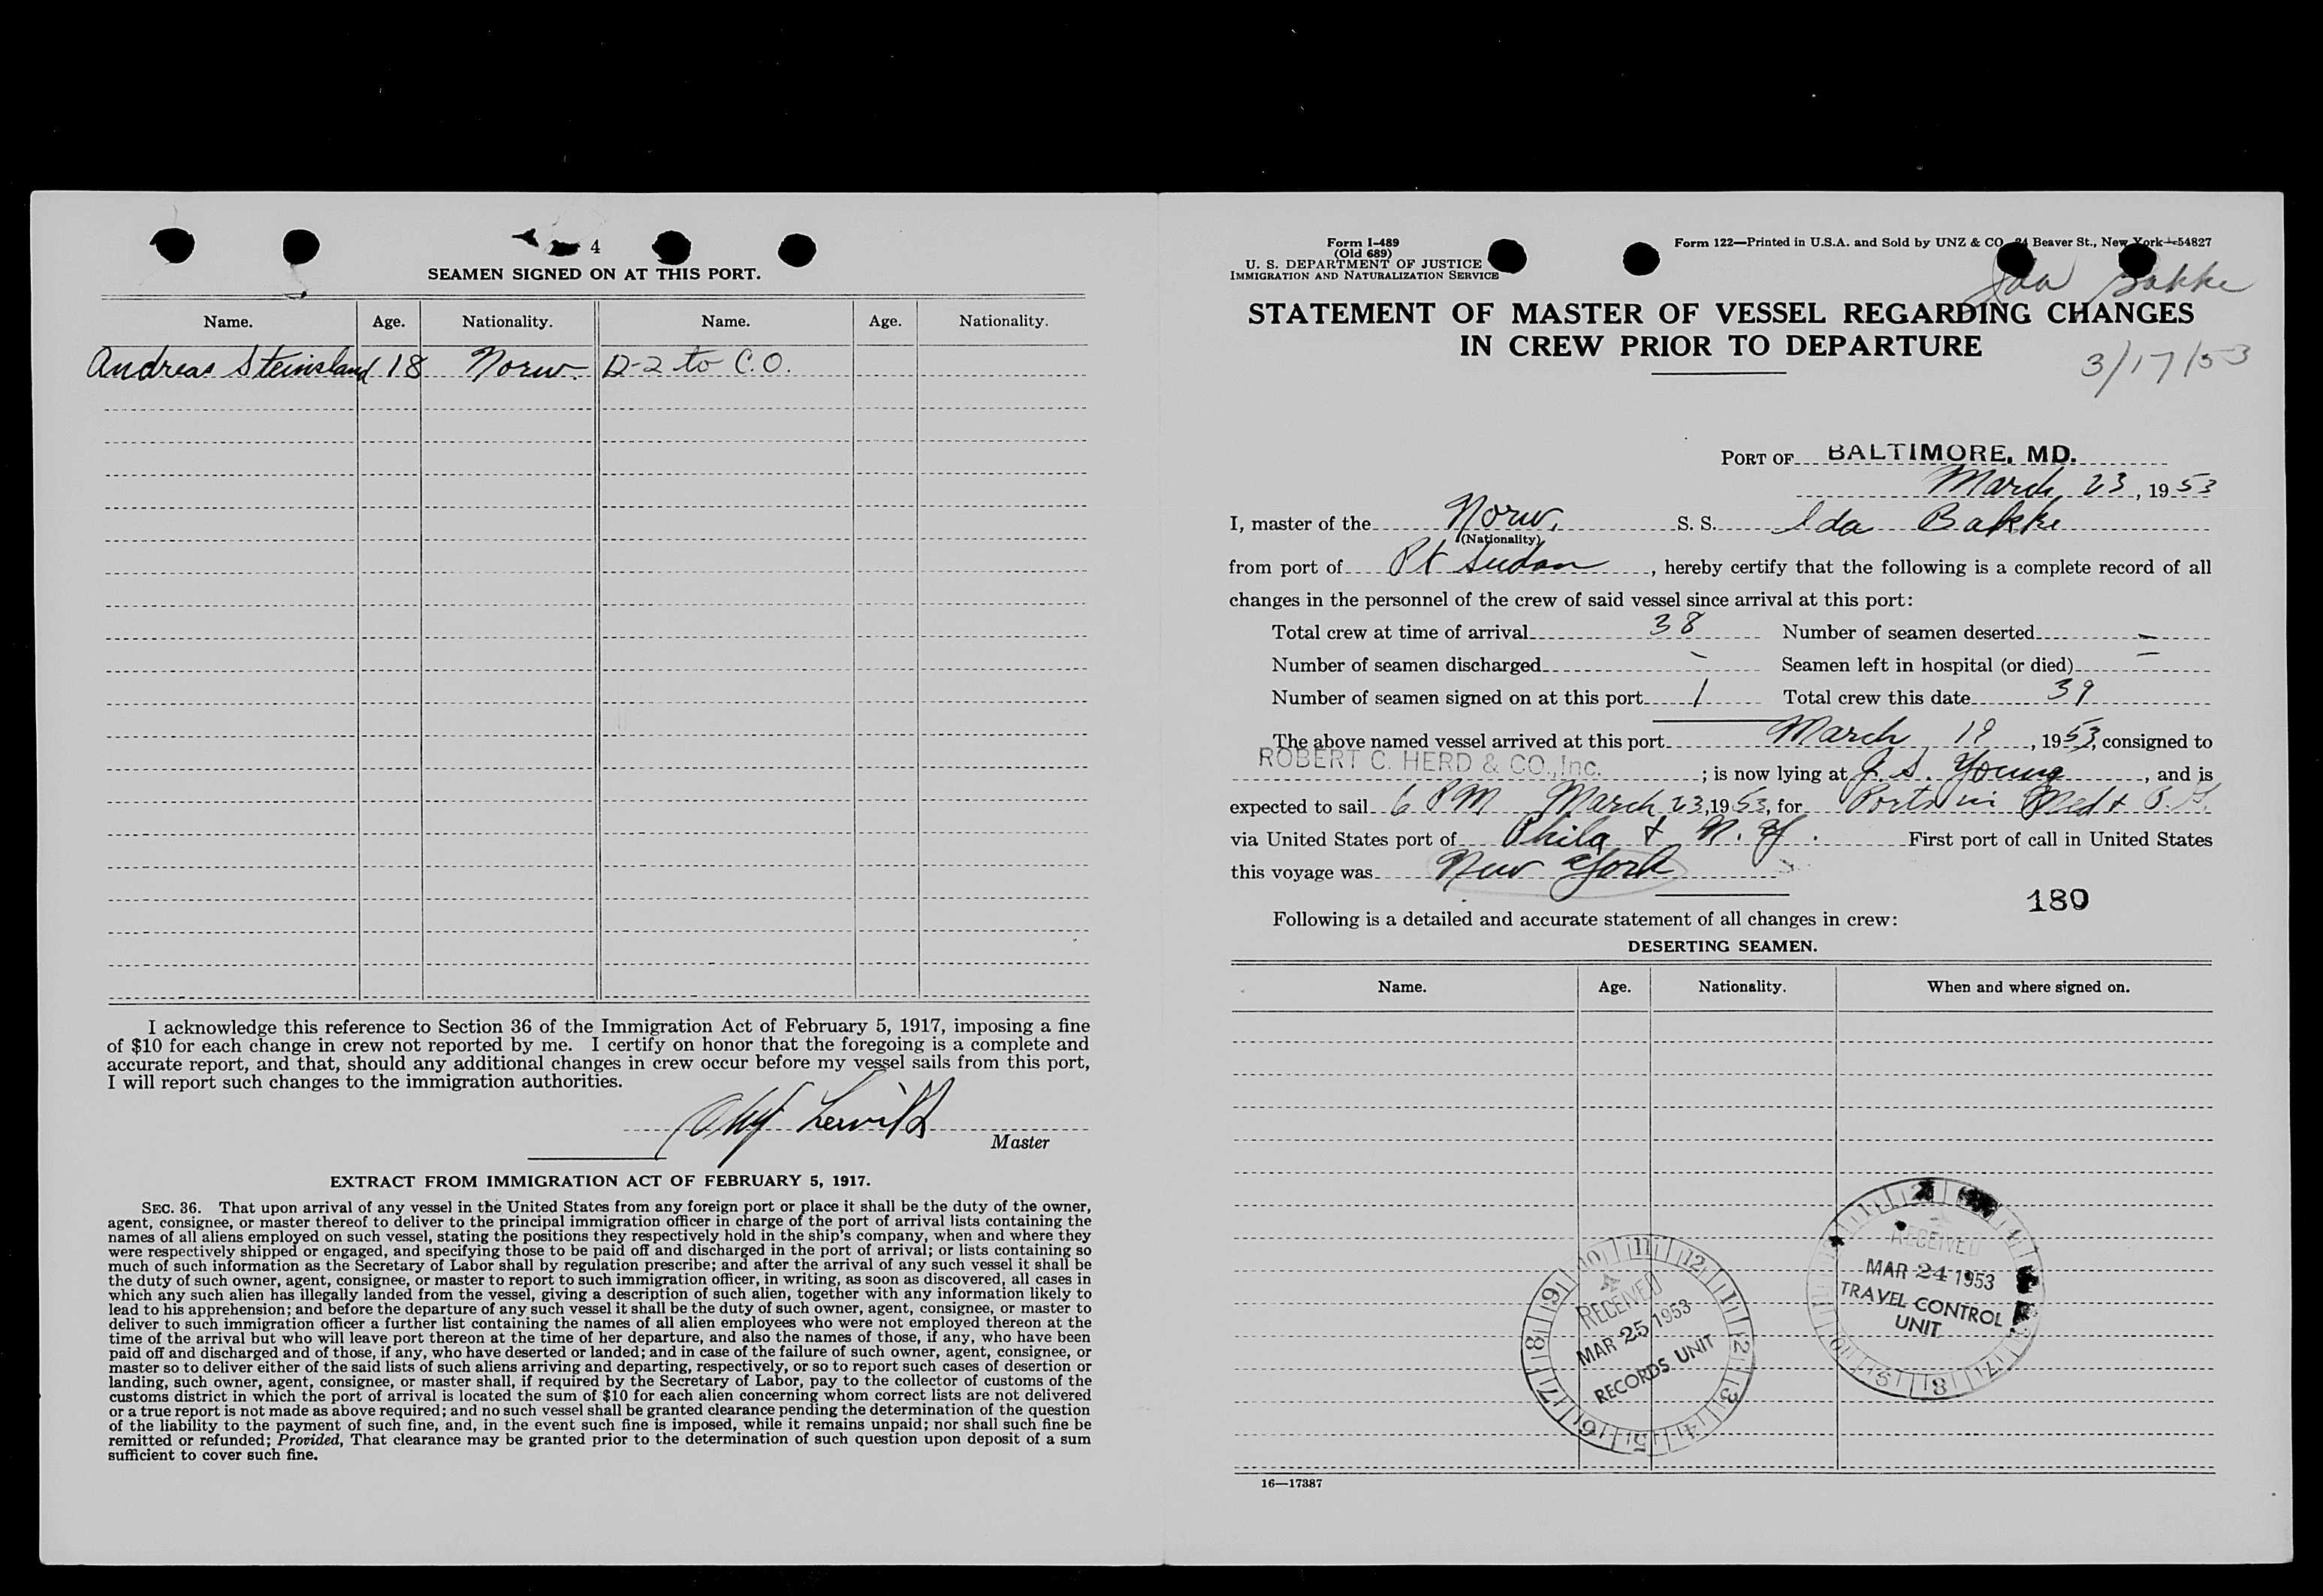 4
SEAMEN SIGNED ON AT THIS PORT.
Name. Age. Nationality. Name. Age. Nationality.
Andreas Steinsland 18 Norw. D-2 to C.O.
I acknowledge this reference to Section 36 of the Immigration Act of February 5, 1917, imposing a fine
of $10 for each change in crew not reported by me. I certify on honor that the foregoing is a complete and
accurate report, and that, should any additional changes in crew occur before my vessel sails from this port,
I will report such changes to the immigration authorities.
Master
EXTRACT FROM IMMIGRATION ACT OF FEBRUARY 5, 1917.
SEC. 36. That upon arrival of any vessel in the United States from any foreign port or place it shall be the duty of the owner,
agent, consignee, or master thereof to deliver to the principal immigration officer in charge of the port of arrival lists containing the
names of all aliens employed on such vessel, stating the positions they respectively hold in the ship's company, when and where they
were respectively shipped or engaged, and specifying those to be paid off and discharged in the port of arrival; or lists containing so
much of such information as the Secretary of Labor shall by regulation prescribe; and after the arrival of any such vessel it shall be
the duty of such owner, agent, consignee, or master to report to such immigration officer, in writing, as soon as discovered, all cases in
which any such alien has illegally landed from the vessel, giving a description of such alien, together with any information likely to
lead to his apprehension; and before the departure of any such vessel it shall be the duty of such owner, agent, consignee, or master to
deliver to such immigration officer a further list containing the names of all alien employees who were not employed thereon at the
time of the arrival but who will leave port thereon at the time of her departure, and also the names of those, if any, who have been
paid off and discharged and of those, if any, who have deserted or landed; and in case of the failure of such owner, agent, consignee, or
master so to deliver either of the said lists of such aliens arriving and departing, respectively, or so to report such cases of desertion or
landing, such owner, agent, consignee, or master shall, if required by the Secretary of Labor, pay to the collector of customs of the
customs district in which the port of arrival is located the sum of $10 for each alien concerning whom correct lists are not delivered
or a true report is not made as above required; and no such vessel shall be granted clearance pending the determination of the question
of the liability to the payment of such fine, and, in the event such fine is imposed, while it remains unpaid; nor shall such fine be
remitted or refunded; Provided, That clearance may be granted prior to the determination of such question upon deposit of a sum
sufficient to cover such fine.
Form I-489
(Old 689)
U. S. DEPARTMENT OF JUSTICE
IMMIGRATION AND NATURALIZATION SERVICE
Form 122—Printed in U.S.A. and Sold by UNZ & CO 24 Beaver St., New York—54827
Ida Bakke
STATEMENT OF MASTER OF VESSEL REGARDING CHANGES
IN CREW PRIOR TO DEPARTURE
3/17/53
PORT OF BALTIMORE, MD.
March 23, 1953
I, master of the Norw. S. S. Ida Bakke
(Nationality)
from port of Pt Sudan, hereby certify that the following is a complete record of all
changes in the personnel of the crew of said vessel since arrival at this port:
Total crew at time of arrival 38 Number of seamen deserted —
Number of seamen discharged - Seamen left in hospital (or died) —
Number of seamen signed on at this port 1 Total crew this date 39
The above named vessel arrived at this port March 19, 1953, consigned to
ROBERT C. HERD & CO., Inc.; is now lying at J. S. Young, and is
expected to sail 6 PM March 23, 1953, for Ports in Med &
via United States port of Phila & N. Y. First port of call in United States
this voyage was New York
180
Following is a detailed and accurate statement of all changes in crew:
DESERTING SEAMEN.
Name. Age. Nationality. When and where signed on.
RECEIVED
MAR 25 1953
RECORDS UNIT
RECEIVED
MAR 24 1953
TRAVEL CONTROL
UNIT
16—17387